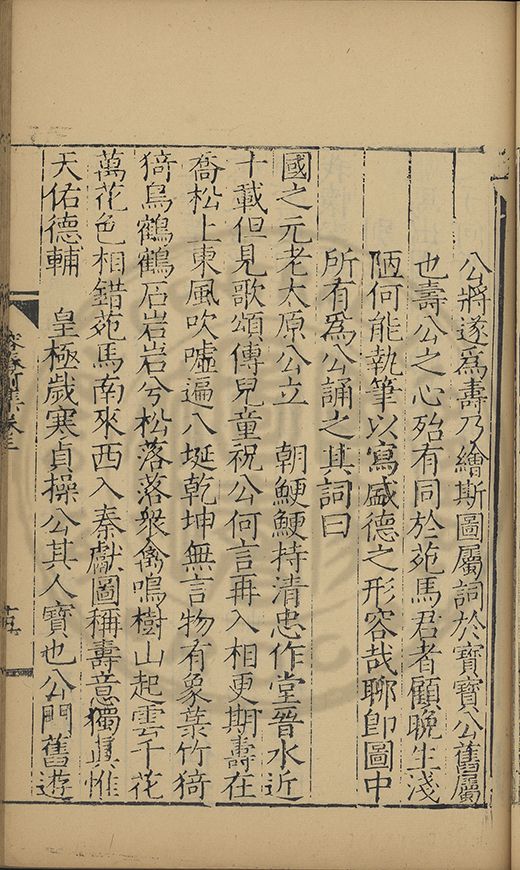 公將遂為壽乃繪斯圖屬詞於寶寶公舊屬
也壽公之心殆有同於苑馬君者顧晚生淺
陋何能執筆以寫盛德之形容哉聊即圖中
所有為公誦之其詞曰
國之元老太原公立　朝鯁鯁持清忠作堂晉水近
十載但見歌頌傳兒童祝公何言再入相更期壽在
喬松上東風吹噓遍八埏乾坤無言物有象菉竹猗
猗鳥鶴鶴石岩岩兮松落落衆禽鳴樹山起雲千花
萬花色相錯苑馬南來西入秦獻圖稱壽意獨眞惟
天佑德輔　皇極歲寒貞操公其人寶也公門舊遊
十五